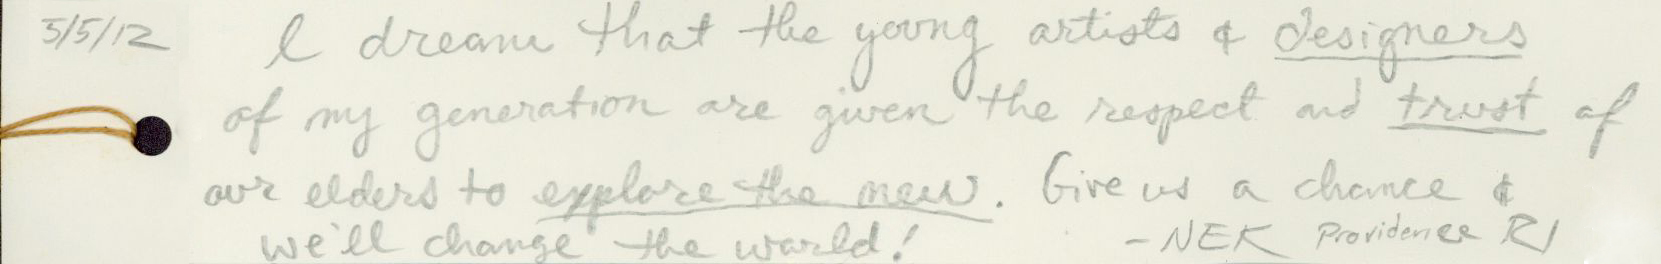 5/5/12 I dream that the young artists & designers
of my generation are given the respect and trust of
our elders to explore the new. Give us a chance &
we'll change the world! -NEK Providence RI